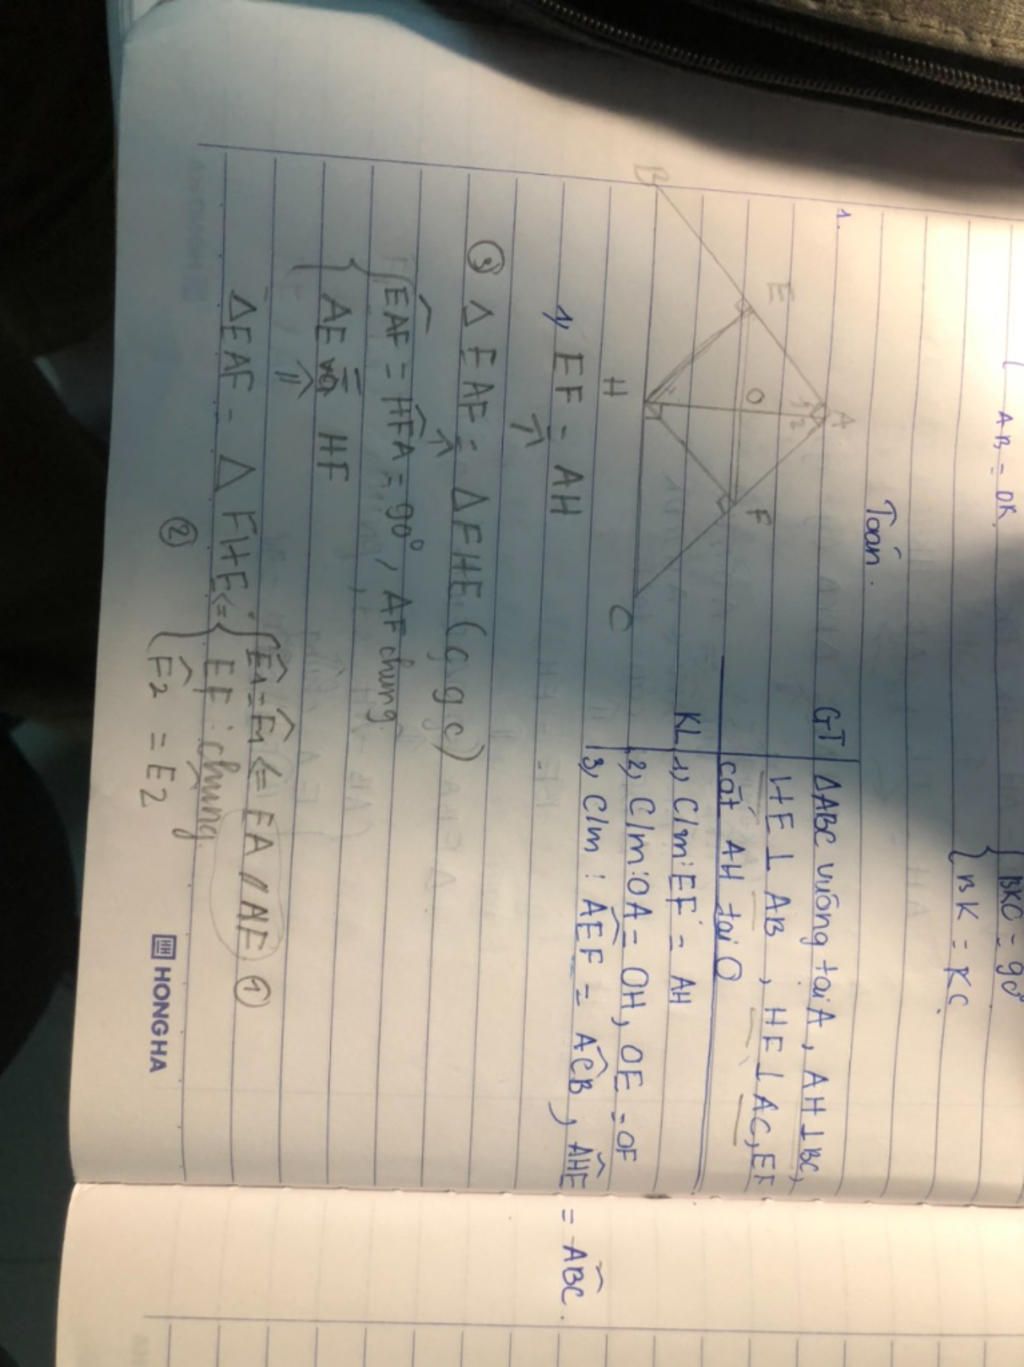 AB = OK
BKC = 90°
BK = KC.
Toán.
1.
A
B
C
E
F
H
O
GT | ΔABC vuông tại A, AH ⊥ BC,
HE ⊥ AB, HF ⊥ AC, EF
cắt AH tại O
KL | 1, C/m: EF = AH
2, C/m: OA = OH, OE = OF
3, C/m: AEF = ACB, AHE = ABC.
1, EF = AH
⇑
③ Δ EAF = Δ FHE (c g c)
⇑
EAF = HFA = 90°, AF chung
AE = HF
⇑
ΔEAF = Δ FHE ⇐ E1 = F1 ⇐ EA // HF ①
EF: chung
② F2 = E2
HONG HA